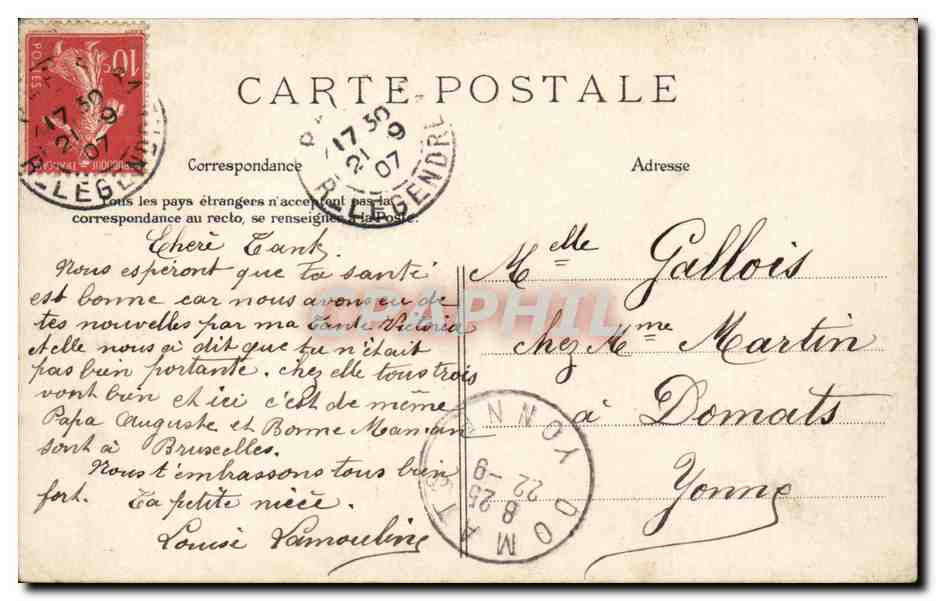 CARTE POSTALE
Correspondance
Adresse
Tous les pays étrangers n'acceptent pas la
correspondance au recto, se renseigner à la Poste.
10c
POSTES
17 30
21-9
07
R. LEGENDRE
17 30
21-9
07
R. LEGENDRE
Cheré Tante
Nous espéront que ta santé
est bonne car nous avons eu de
tes nouvelles par ma Tante Victoria
et elle nous a dit que tu n'était
pas bien portante. chez elle tous trois
vont bien et ici c'est de même
Papa Auguste et Bonne Maman
sont à Bruxelles.
Nous t'embrassons tous bien
fort. Ta petite nièce.
Louise Lamouline
Melle Gallois
chez Mme Martin
à Domats
Yonne
DOMATS
YONNE
8
25
22-9
CPAPHIL